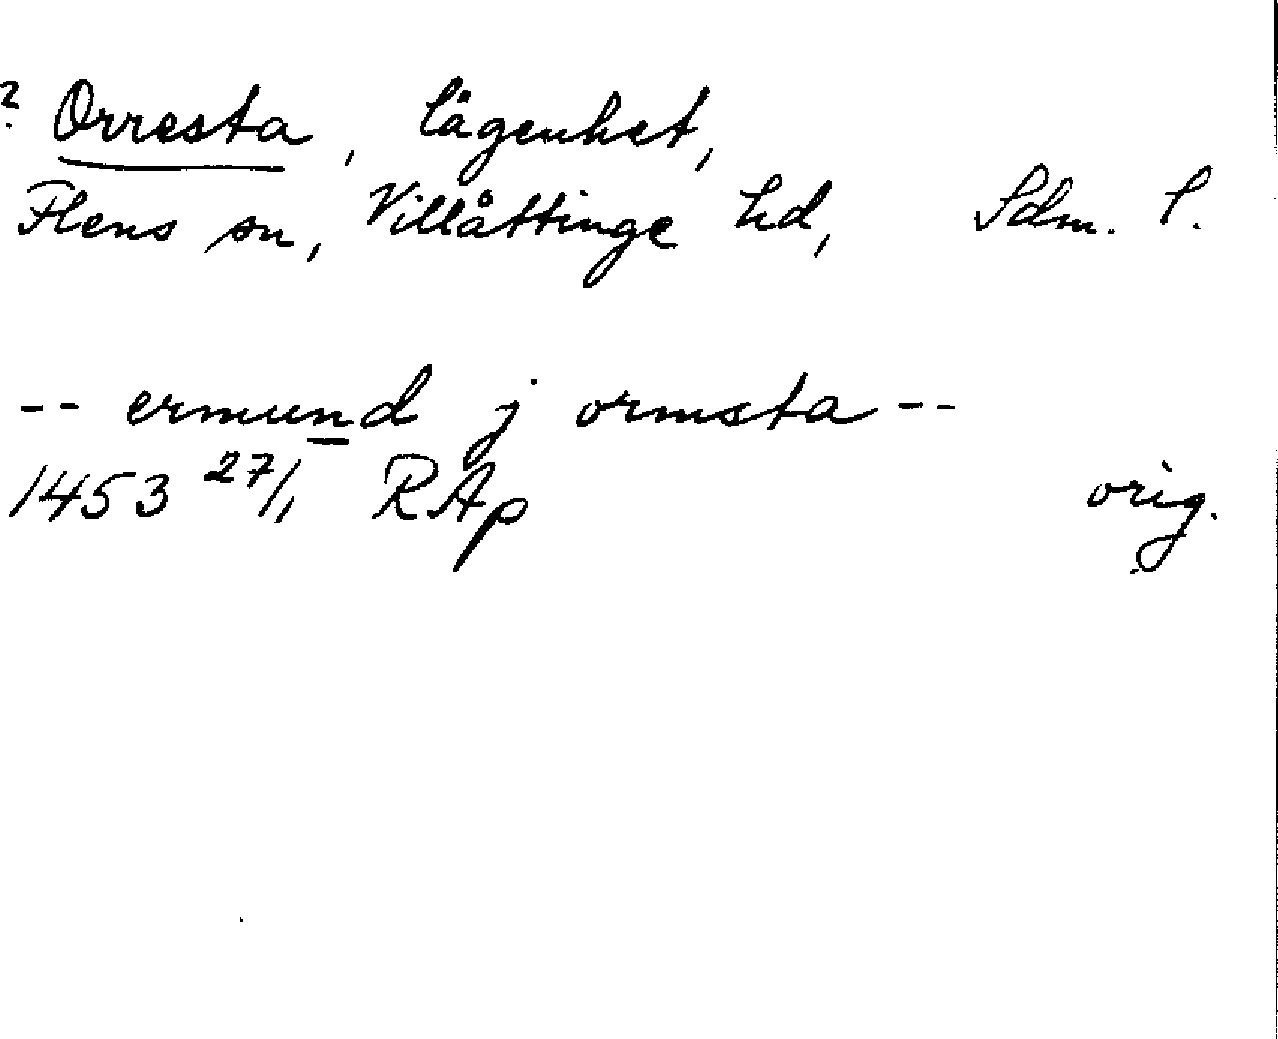 ? Orresta, lägenhet,
Flens sn, Villåttinge hd, Sdm. l.
-- ermund j ormsta --
1453 27/1 RAp orig.